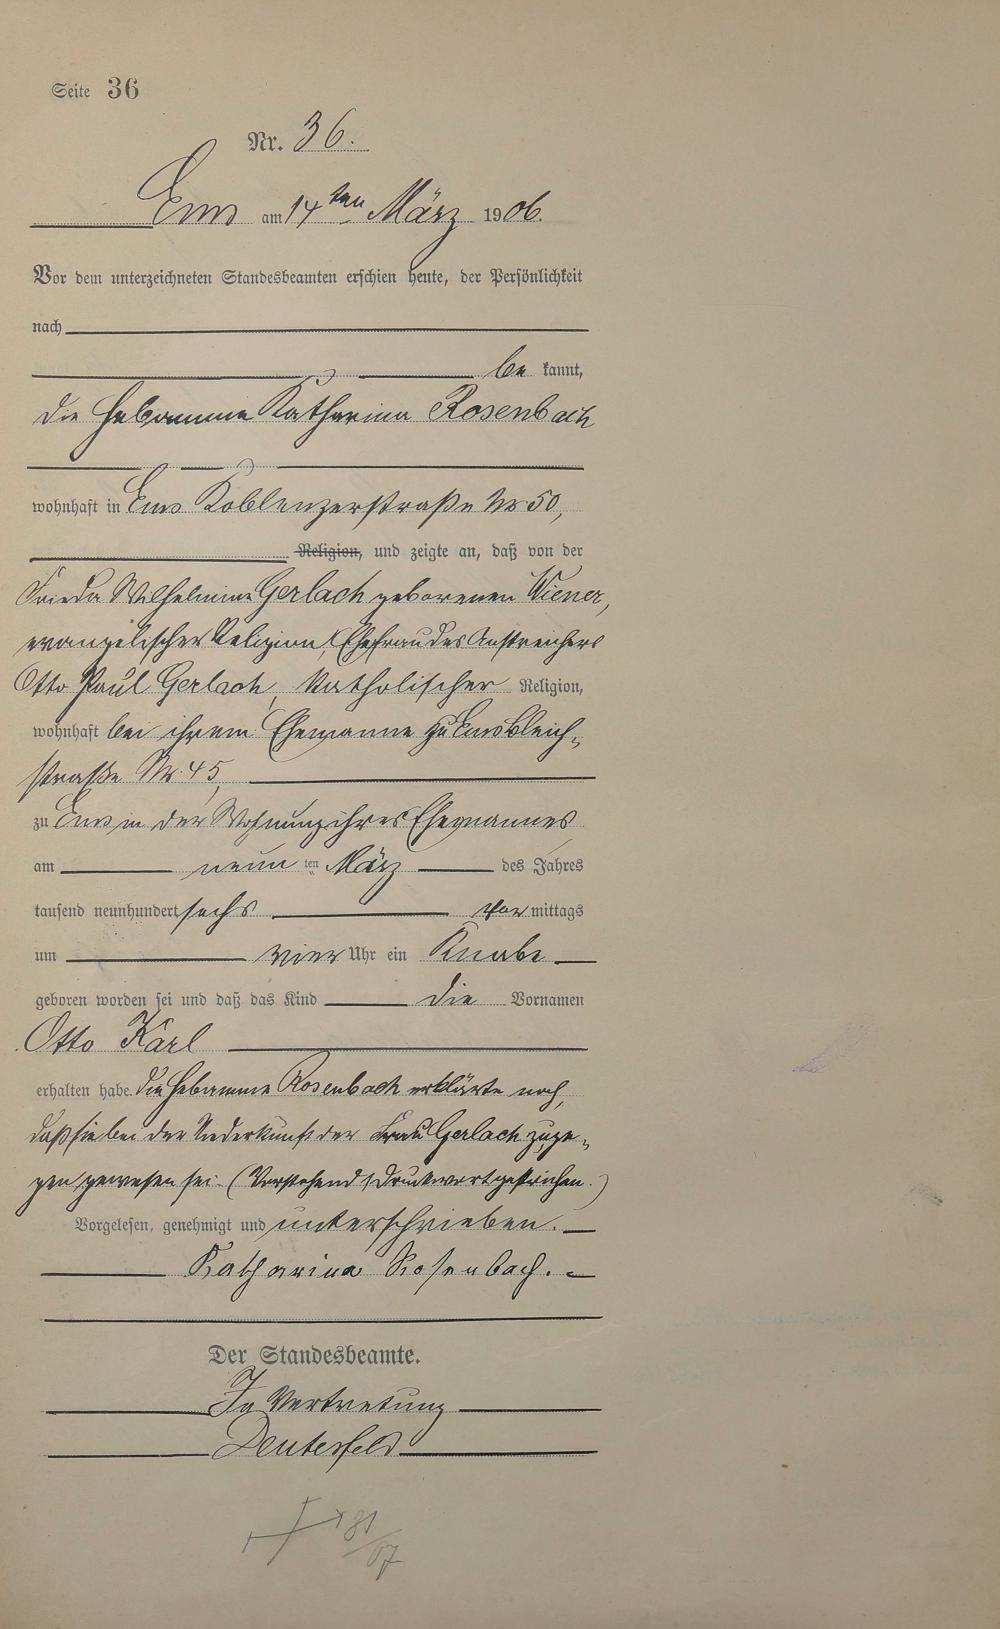 Seite 36
Nr. 36.
Ems am 14ten März 1906.
Vor dem unterzeichneten Standesbeamten erschien heute, der Persönlichkeit
nach
be kannt,
die Hebamme Katharina Rosenbach
wohnhaft in Ems Koblenzerstraße Nr. 50,
Religion, und zeigte an, daß von der
Frieda Wilhelmine Gerlach geborenen Wiener,
evangelischer Religion, Ehefrau des Anstreichers
Otto Paul Gerlach, katholischer Religion,
wohnhaft bei ihrem Ehemanne zu Ems Bleich-
straße Nr. 45,
zu Ems in der Wohnung ihres Ehemannes
am neun ten März des Jahres
tausend neunhundert sechs vor mittags
um vier Uhr ein Knabe
geboren worden sei und daß das Kind die Vornamen
Otto Karl
erhalten habe. Die Hebamme Rosenbach erklärte noch,
daß sie bei der Niederkunft der Frau Gerlach zuge-
gen gewesen sei. (Vorstehend 1 Druckwort gestrichen.)
Vorgelesen, genehmigt und unterschrieben.
Katharina Rosenbach.
Der Standesbeamte.
In Vertretung
81
07